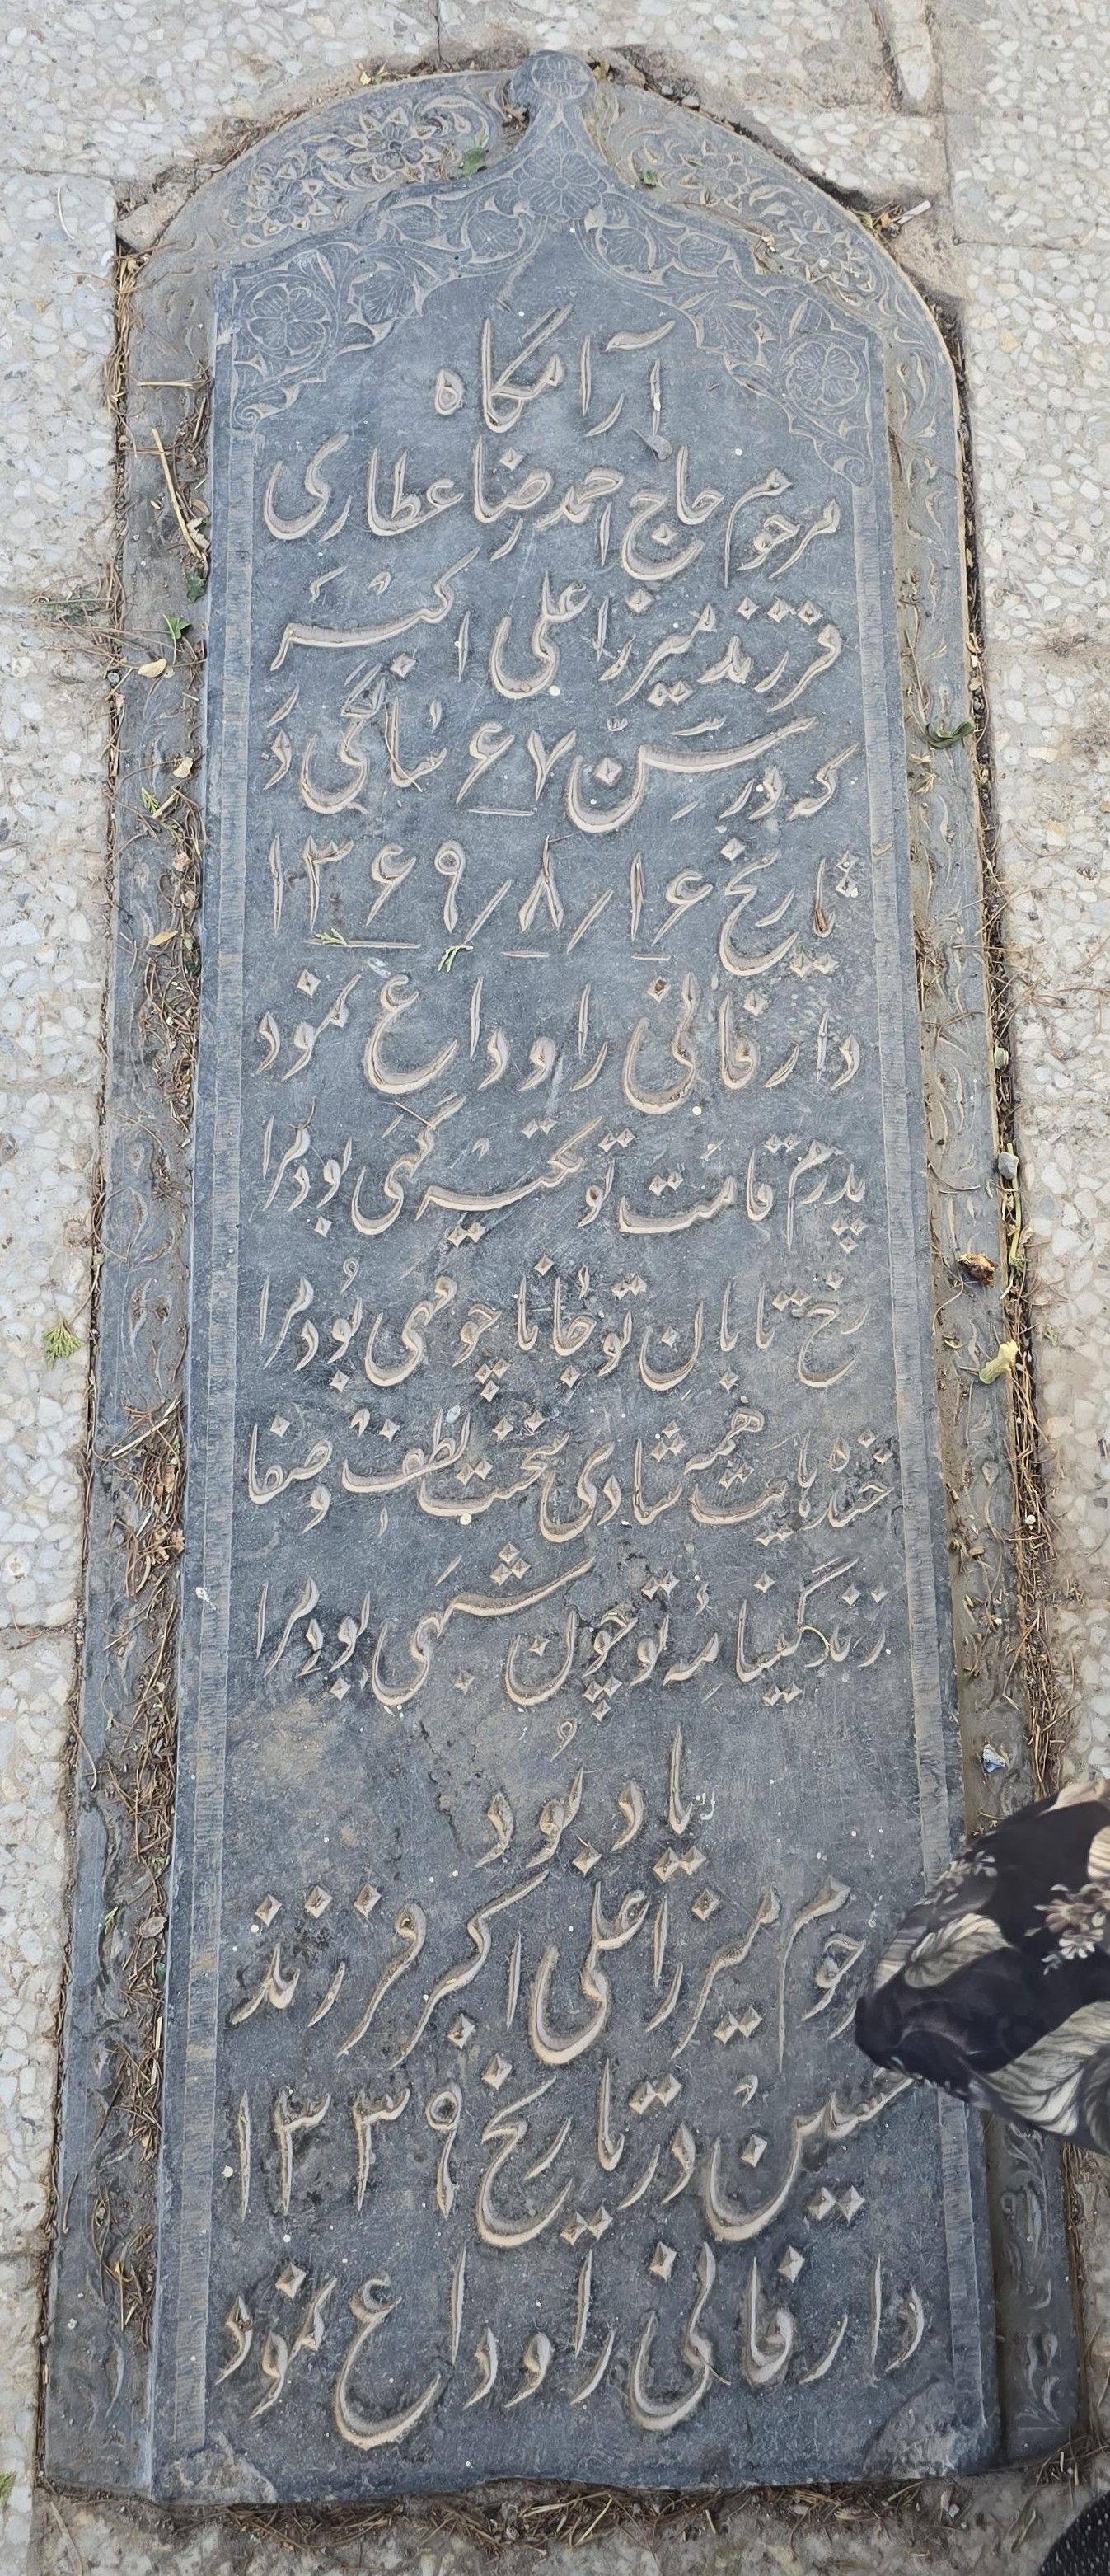 آرامگاه
مرحوم حاج احمد رضا عطاری
فرزند میرزا علی اکبر
که در سن ۶۷ سالگی در
تاریخ ۱۶/۸/۱۳۶۹
دار فانی را وداع نمود
پدرم قامت تو تکیه گهی بود مرا
رخ تابان تو جانا چو مهی بود مرا
خنده هایت همه شادی سخنت لطف و صفا
زندگینامه تو چون سبهی بود مرا
یاد بود
حوم میرزا علی اکبر فرزند
حسین در تاریخ ۱۳۳۹
دار فانی را وداع نمود